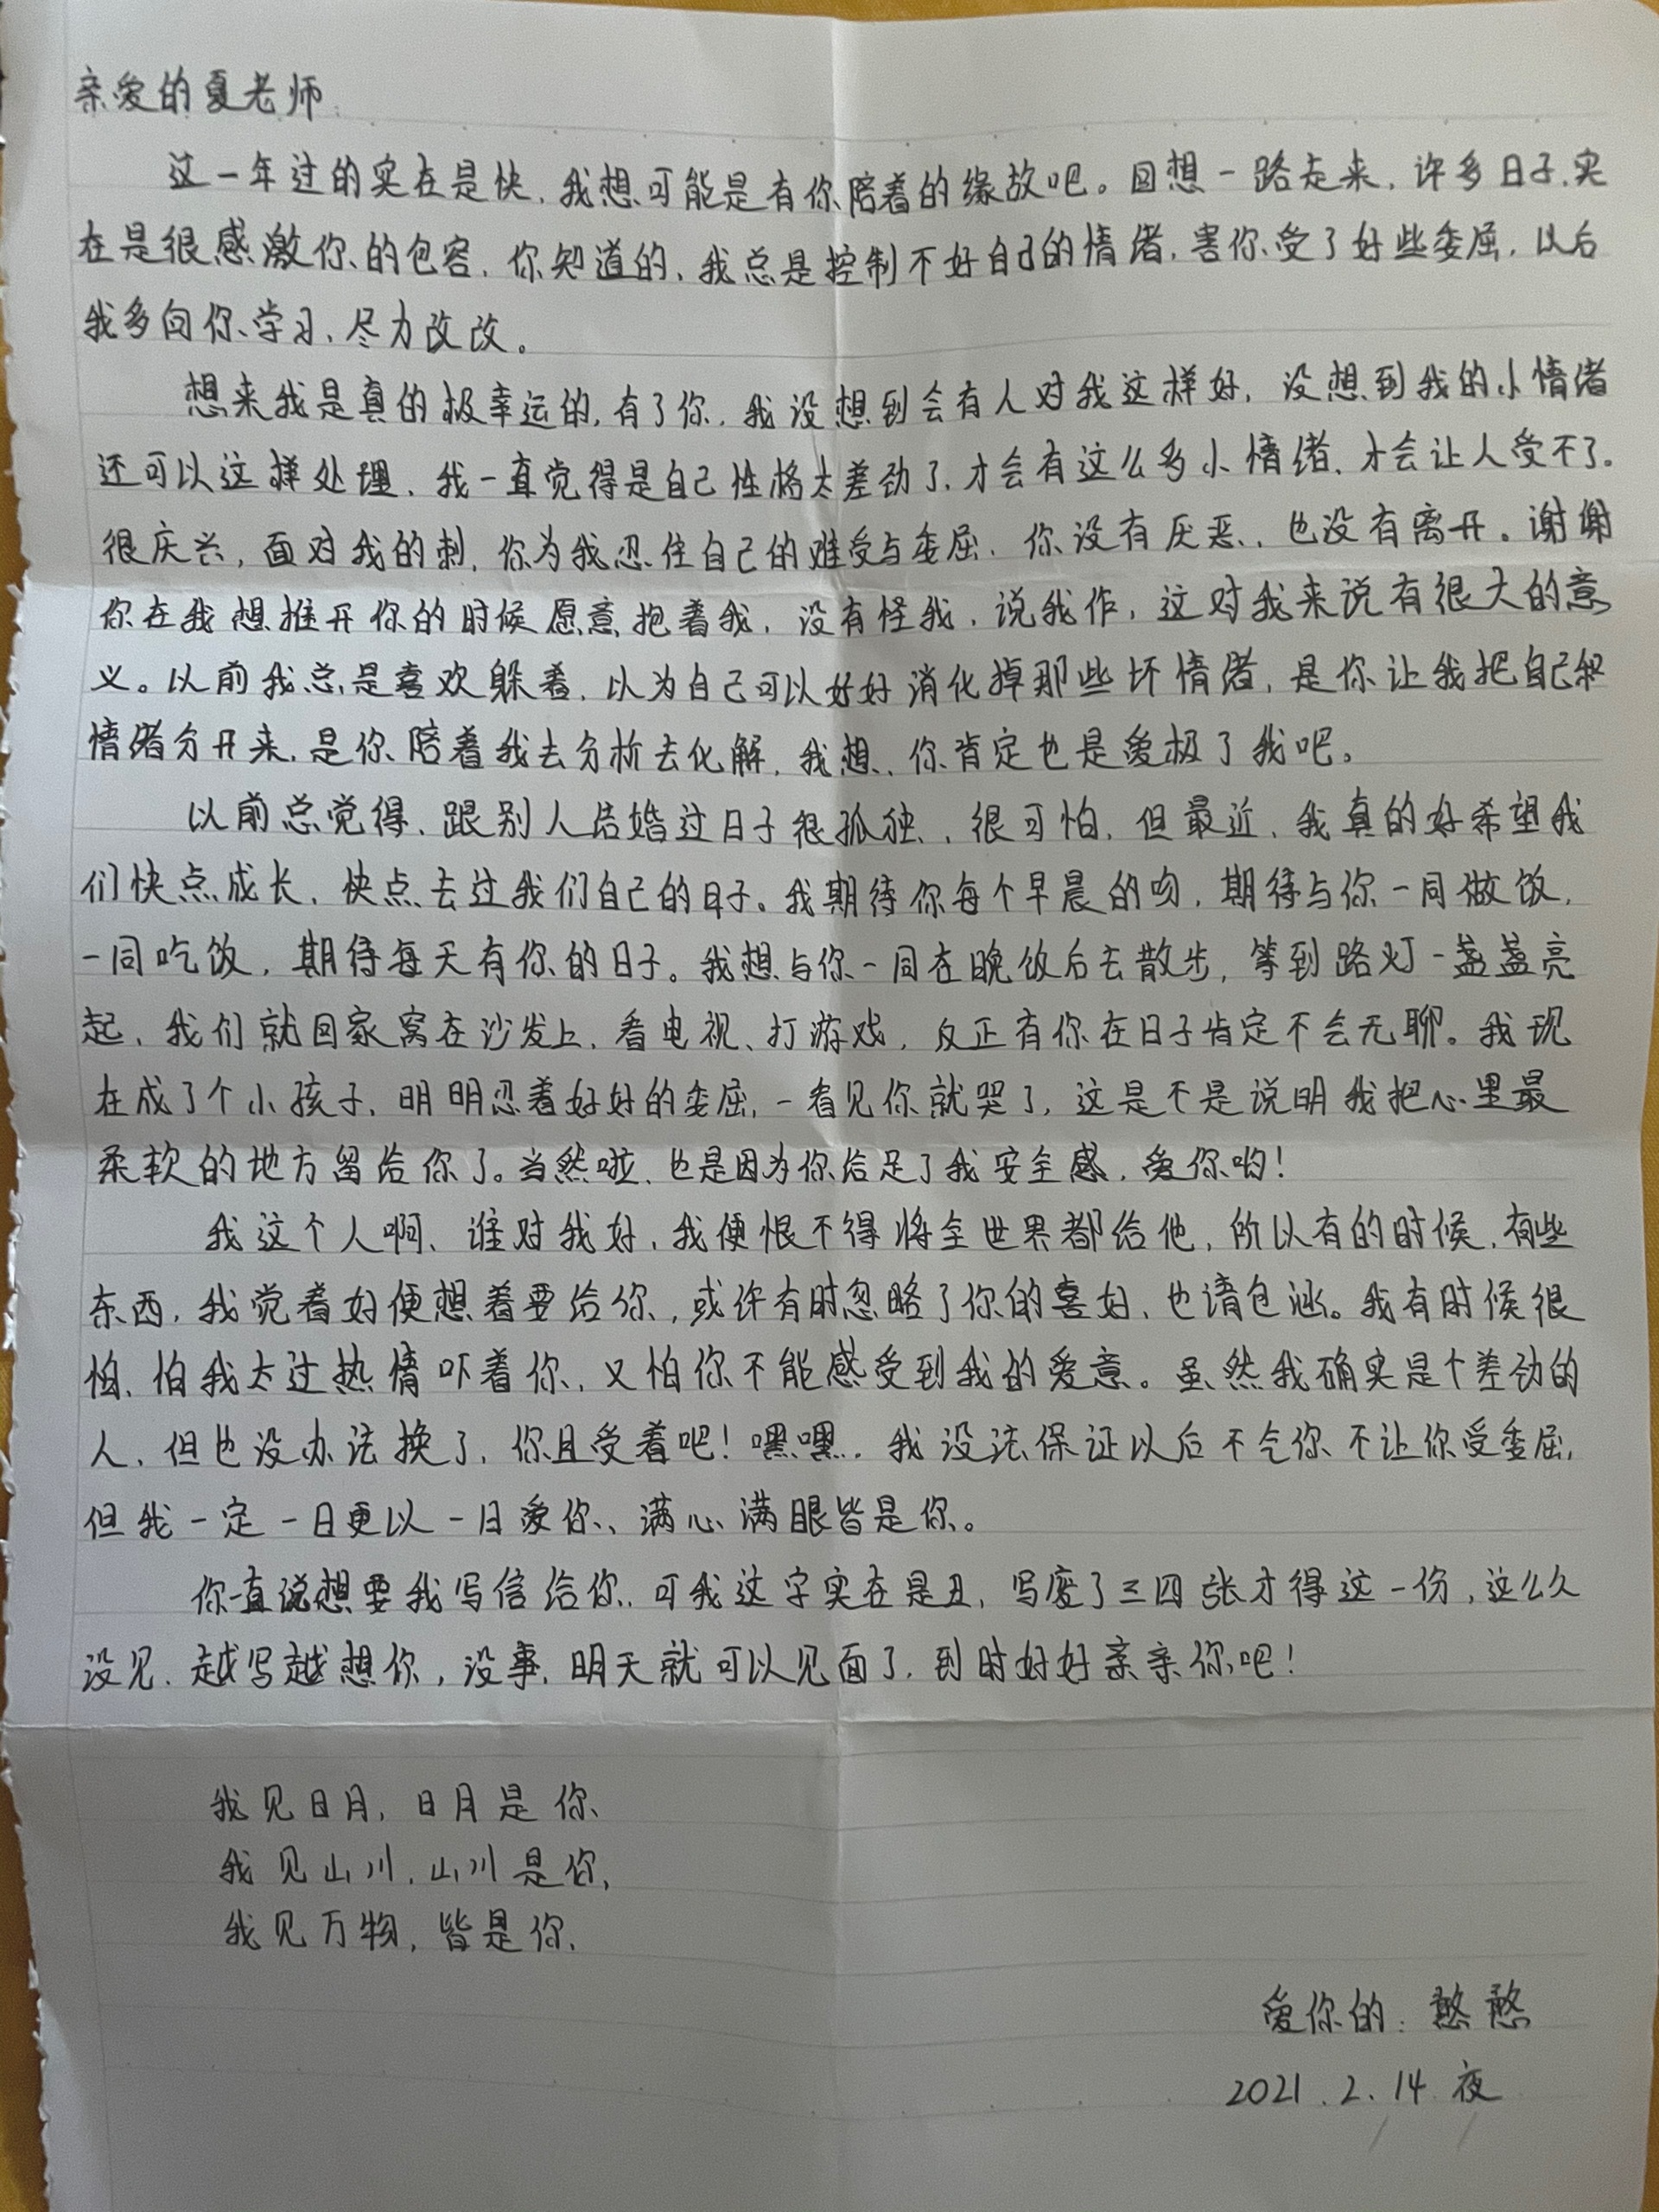 亲爱的夏老师:
这一年过的实在是快,我想可能是有你陪着的缘故吧。回想一路走来,许多日子,实
在是很感激你的包容,你知道的,我总是控制不好自己的情绪,害你受了好些委屈,以后
我多向你学习,尽力改改。
想来我是真的极幸运的,有了你,我没想到会有人对我这样好,没想到我的小情绪
还可以这样处理,我一直觉得是自己性格太差劲了,才会有这么多小情绪,才会让人受不了。
很庆兴,面对我的刺,你为我忍住自己的难受与委屈,你没有厌恶,也没有离开。谢谢
你在我想推开你的时候愿意抱着我,没有怪我,说我作,这对我来说有很大的意
义。以前我总是喜欢躲着,以为自己可以好好消化掉那些坏情绪,是你让我把自己和
情绪分开来,是你陪着我去分析去化解,我想,你肯定也是爱极了我吧。
以前总觉得,跟别人结婚过日子很孤独,很可怕,但最近,我真的好希望我
们快点成长,快点去过我们自己的日子。我期待你每个早晨的吻,期待与你一同做饭,
一同吃饭,期待每天有你的日子。我想与你一同在晚饭后去散步,等到路灯一盏盏亮
起,我们就回家窝在沙发上,看电视、打游戏,反正有你在日子肯定不会无聊。我现
在成了个小孩子,明明忍着好好的委屈,一看见你就哭了,这是不是说明我把心里最
柔软的地方留给你了。当然啦,也是因为你给足了我安全感,爱你哟!
我这个人啊、谁对我好,我便恨不得将全世界都给他,所以有的时候,有些
东西,我觉着好便想着要给你,或许有时忽略了你的喜好,也请包涵。我有时候很
怕,怕我太过热情吓着你,又怕你不能感受到我的爱意。虽然我确实是个差劲的
人,但也没办法换了,你且受着吧!嘿嘿,我没法保证以后不气你不让你受委屈,
但我一定一日更以一日爱你、满心满眼皆是你。
你一直说想要我写信给你,可我这字实在是丑,写废了三四张才得这一份,这么久
没见,越写越想你,没事,明天就可以见面了,到时好好亲亲你吧!
我见日月,日月是你、
我见山川,山川是你,
我见万物,皆是你、
爱你的:憨憨
2021.2.14 夜